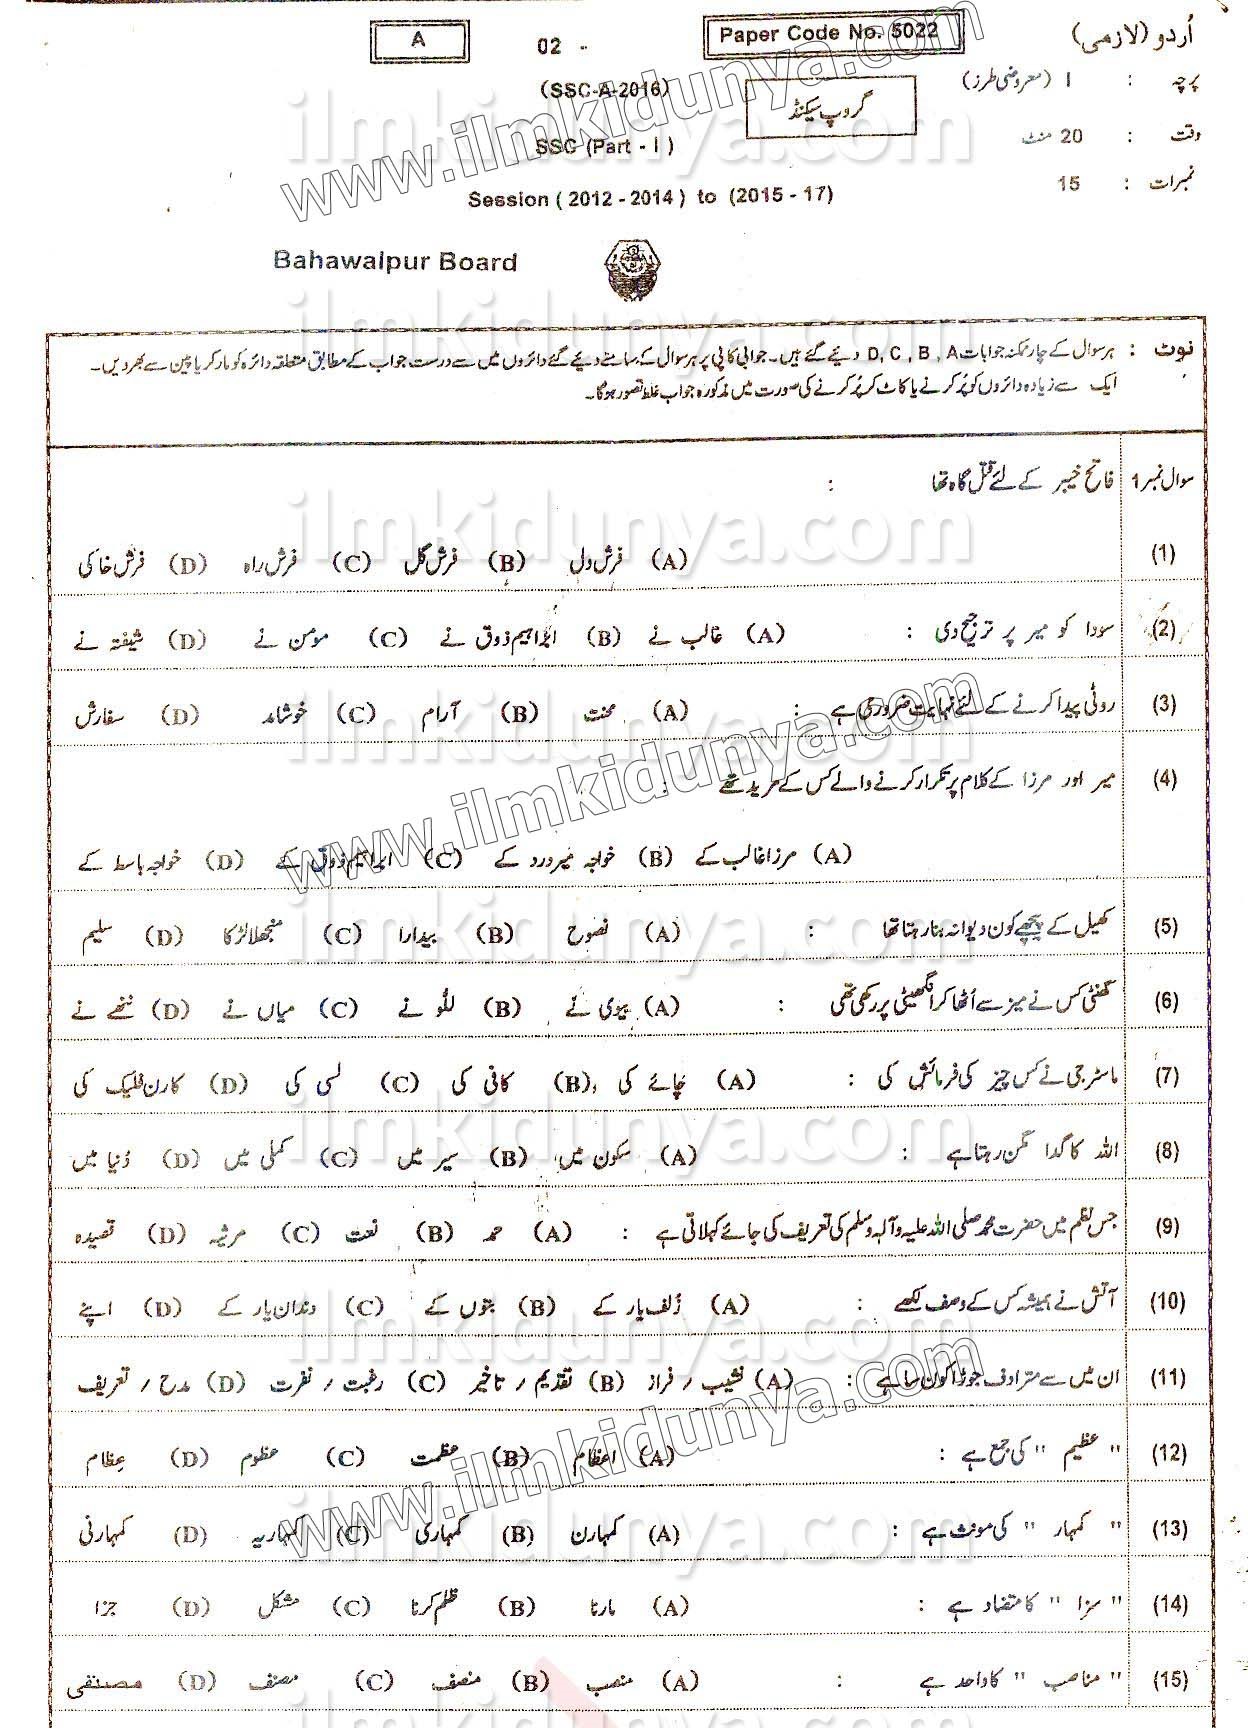 A
02 -
Paper Code No. 5022
اُردو (لازمی)
(SSC-A-2016)
گروپ سیکنڈ
پرچہ : I (معروضی طرز)
SSC (Part - I)
وقت : 20 منٹ
Session ( 2012 - 2014 ) to (2015 - 17)
نمبرات : 15
Bahawalpur Board
نوٹ : ہر سوال کے چار ممکنہ جوابات D, C, B, A دیئے گئے ہیں۔ جوابی کاپی پر ہر سوال کے سامنے دیئے گئے دائروں میں سے درست جواب کے مطابق متعلقہ دائرہ کو مارکر یا پین سے بھر دیں۔
ایک سے زیادہ دائروں کو پُر کرنے یا کاٹ کر پُر کرنے کی صورت میں مذکورہ جواب غلط تصور ہو گا۔
سوال نمبر 1 فاتح خیبر کے لئے قتل گاہ تھا :
(1) (A) فرش دل (B) فرش گل (C) فرش راہ (D) فرش خاکی
(2) سودا کو میر پر ترجیح دی : (A) غالب نے (B) ابراہیم ذوق نے (C) مومن نے (D) شیفتہ نے
(3) روئی پیدا کرنے کے لئے نہایت ضروری ہے : (A) محنت (B) آرام (C) خوشامد (D) سفارش
(4) میر اور مرزا کے کلام پر تکرار کرنے والے کس کے مرید تھے :
(A) مرزا غالب کے (B) خواجہ میر درد کے (C) ابراہیم ذوق کے (D) خواجہ باسط کے
(5) کھیل کے پیچھے کون دیوانہ بنا رہتا تھا : (A) نصوح (B) بیدارا (C) منجھلا لڑکا (D) سلیم
(6) گھنٹی کس نے میز سے اُٹھا کر انگیٹھی پر رکھی تھی : (A) بیوی نے (B) للّو نے (C) میاں نے (D) ننھے نے
(7) ماسٹر جی نے کس چیز کی فرمائش کی : (A) چائے کی (B) کافی کی (C) لسی کی (D) کارن فلیک کی
(8) اللہ کا گدا مگن رہتا ہے : (A) سکون میں (B) سیر میں (C) کملی میں (D) دُنیا میں
(9) جس نظم میں حضرت محمد صلی اللہ علیہ وآلہ وسلم کی تعریف کی جائے کہلاتی ہے : (A) حمد (B) نعت (C) مرثیہ (D) قصیدہ
(10) آتش نے ہمیشہ کس کے وصف لکھے : (A) زُلف یار کے (B) بتوں کے (C) دندان یار کے (D) اپنے
(11) ان میں سے مترادف جوڑا کون سا ہے : (A) نشیب / فراز (B) تقدیم / تاخیر (C) رغبت / نفرت (D) مدح / تعریف
(12) " عظیم " کی جمع ہے : (A) اعظام (B) عظمت (C) عظوم (D) عِظام
(13) " کمہار " کی مونث ہے : (A) کمہارن (B) کمہاری (C) کمہاریہ (D) کمہارنی
(14) " سزا " کا متضاد ہے : (A) مارنا (B) ظلم کرنا (C) مشکل (D) جزا
(15) " مناصب " کا واحد ہے : (A) منصب (B) منصف (C) مصنف (D) مصنفی
www.ilmkidunya.com
ilmkidunya.com
ilmkidunya.com
ilmkidunya.com
ilmkidunya.com
www.ilmkidunya.com
ilmkidunya.com
ilmkidunya.com
ilmkidunya.com
www.ilmkidunya.com
ilmkidunya.com
ilmkidunya.com